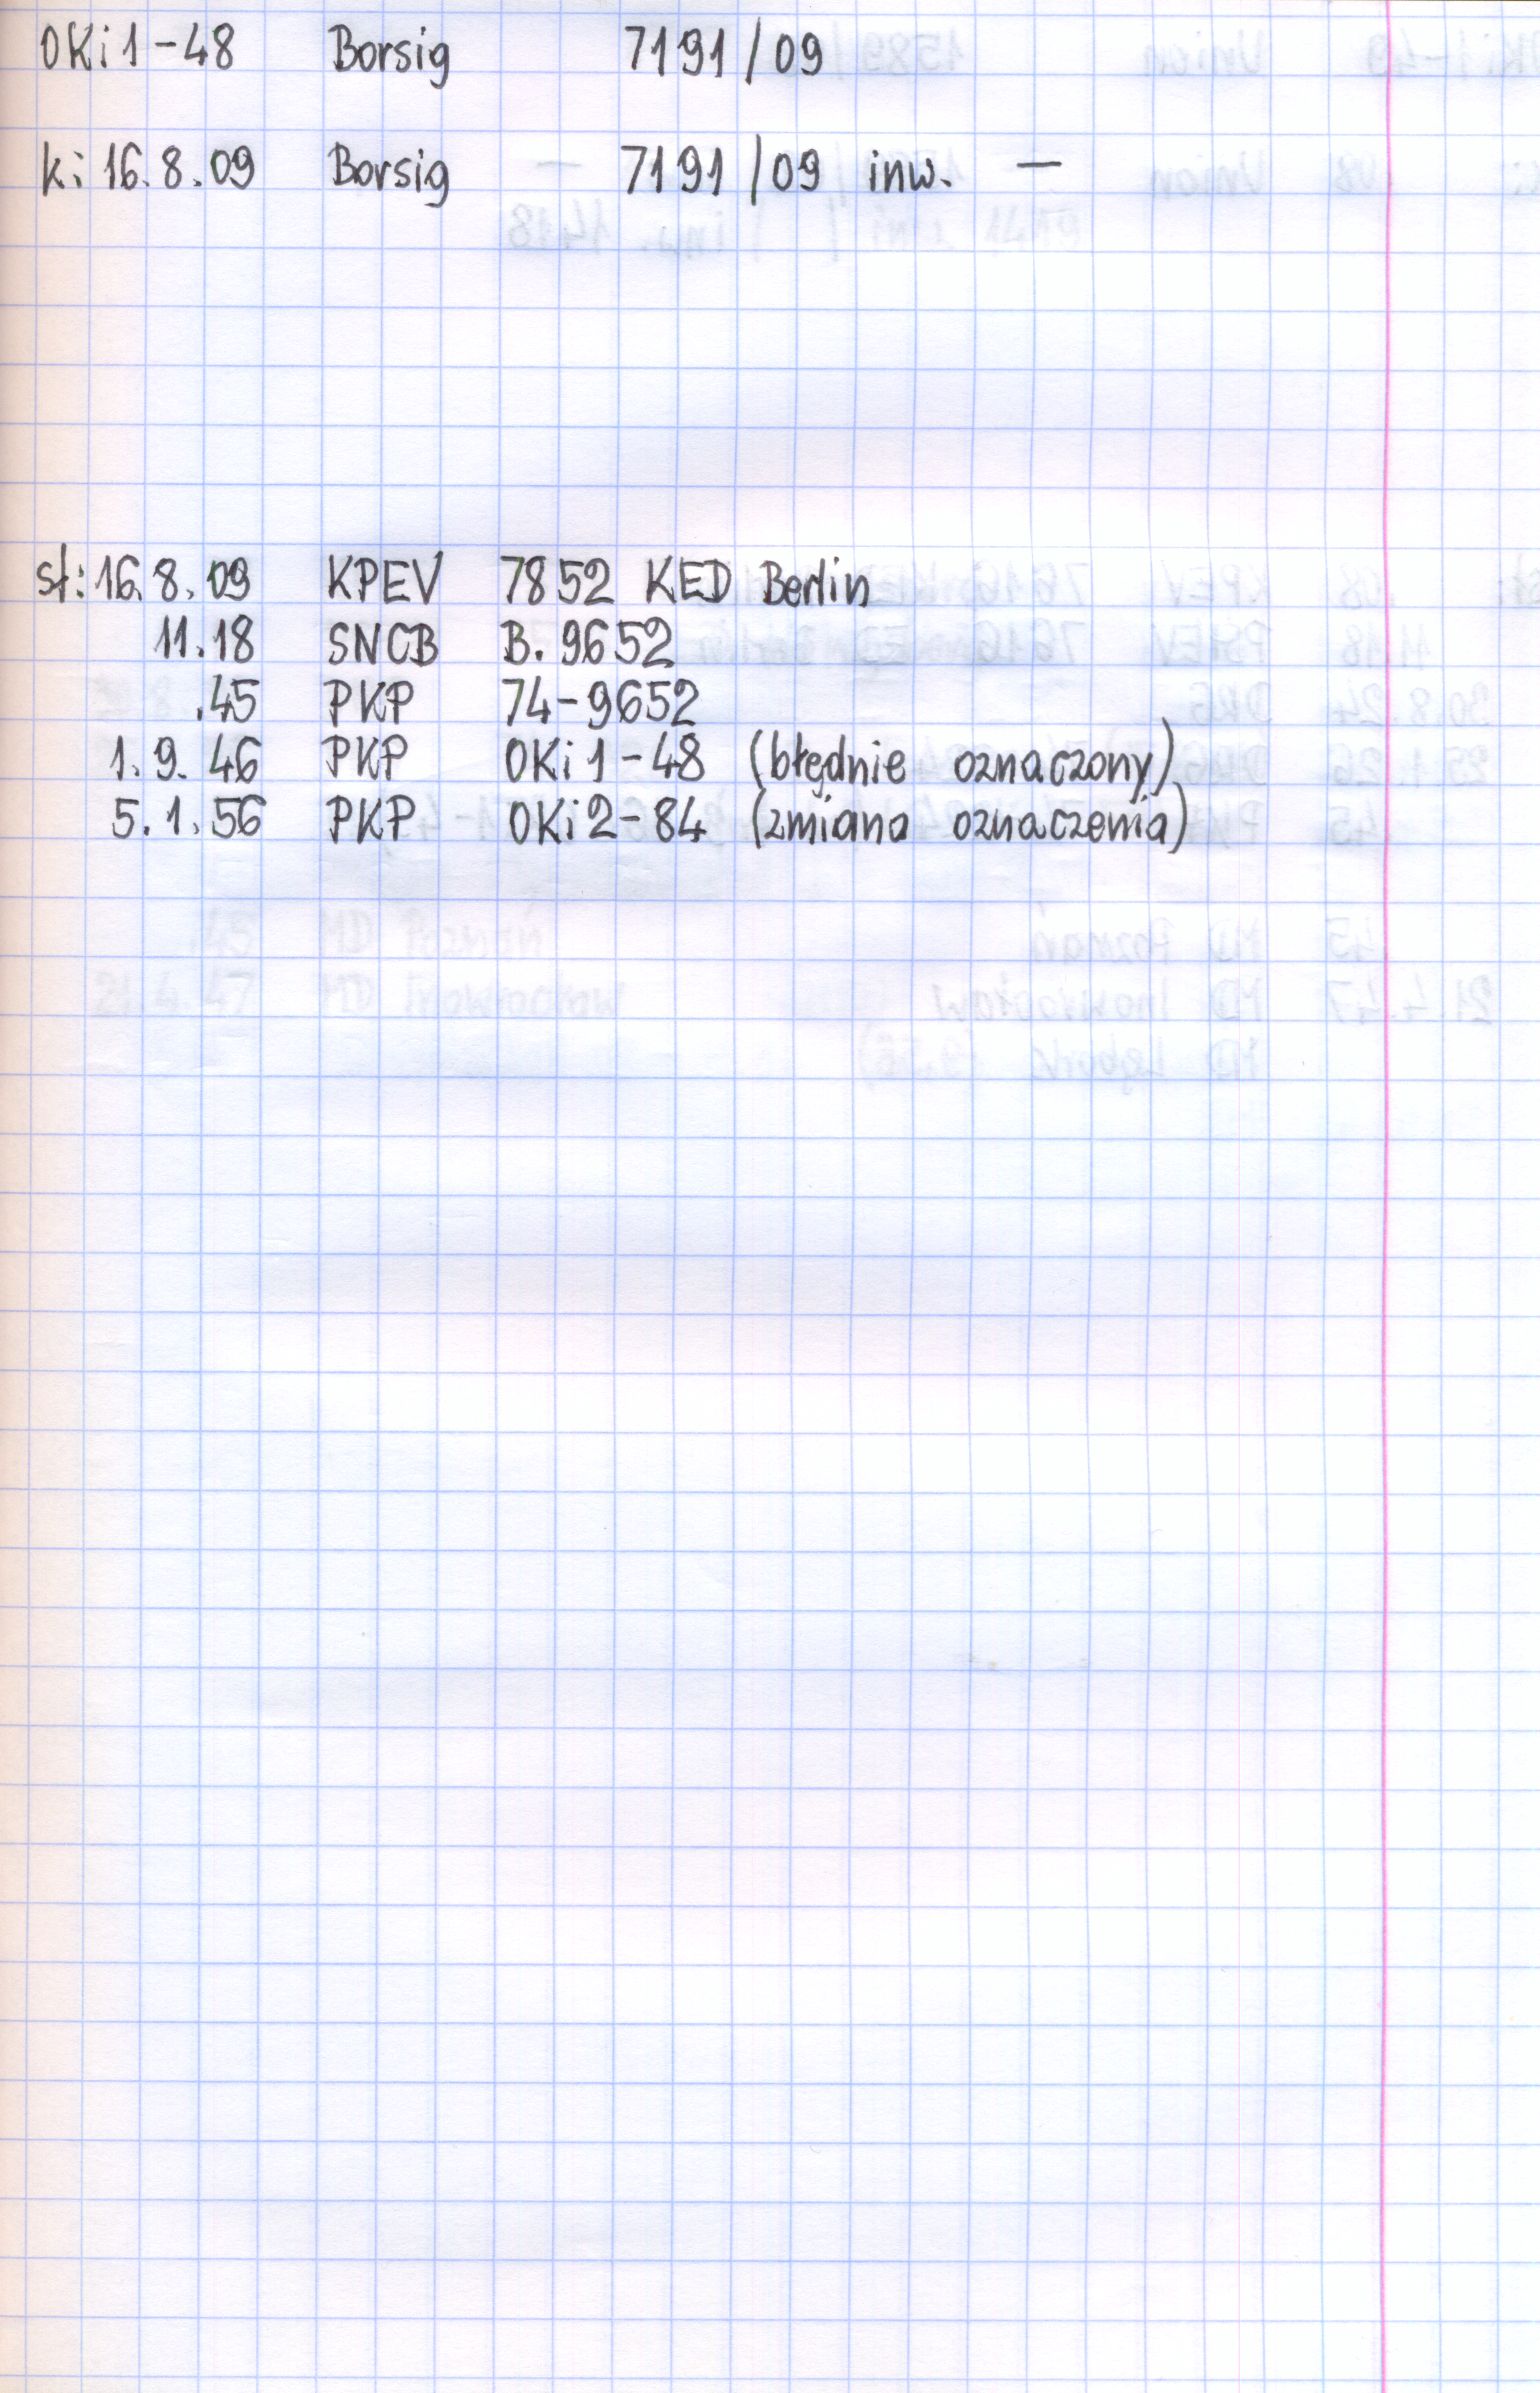 OKi1-48 Borsig 7191/09
k: 16.8.09 Borsig 7191/09 inw. —
st: 16.8.09 KPEV 7852 KED Berlin
11.18 SNCB B.9652
.45 PKP 74-9652
1.9.46 PKP OKi1-48 (błędnie oznaczony)
5.1.56 PKP OKi2-84 (zmiana oznaczenia)